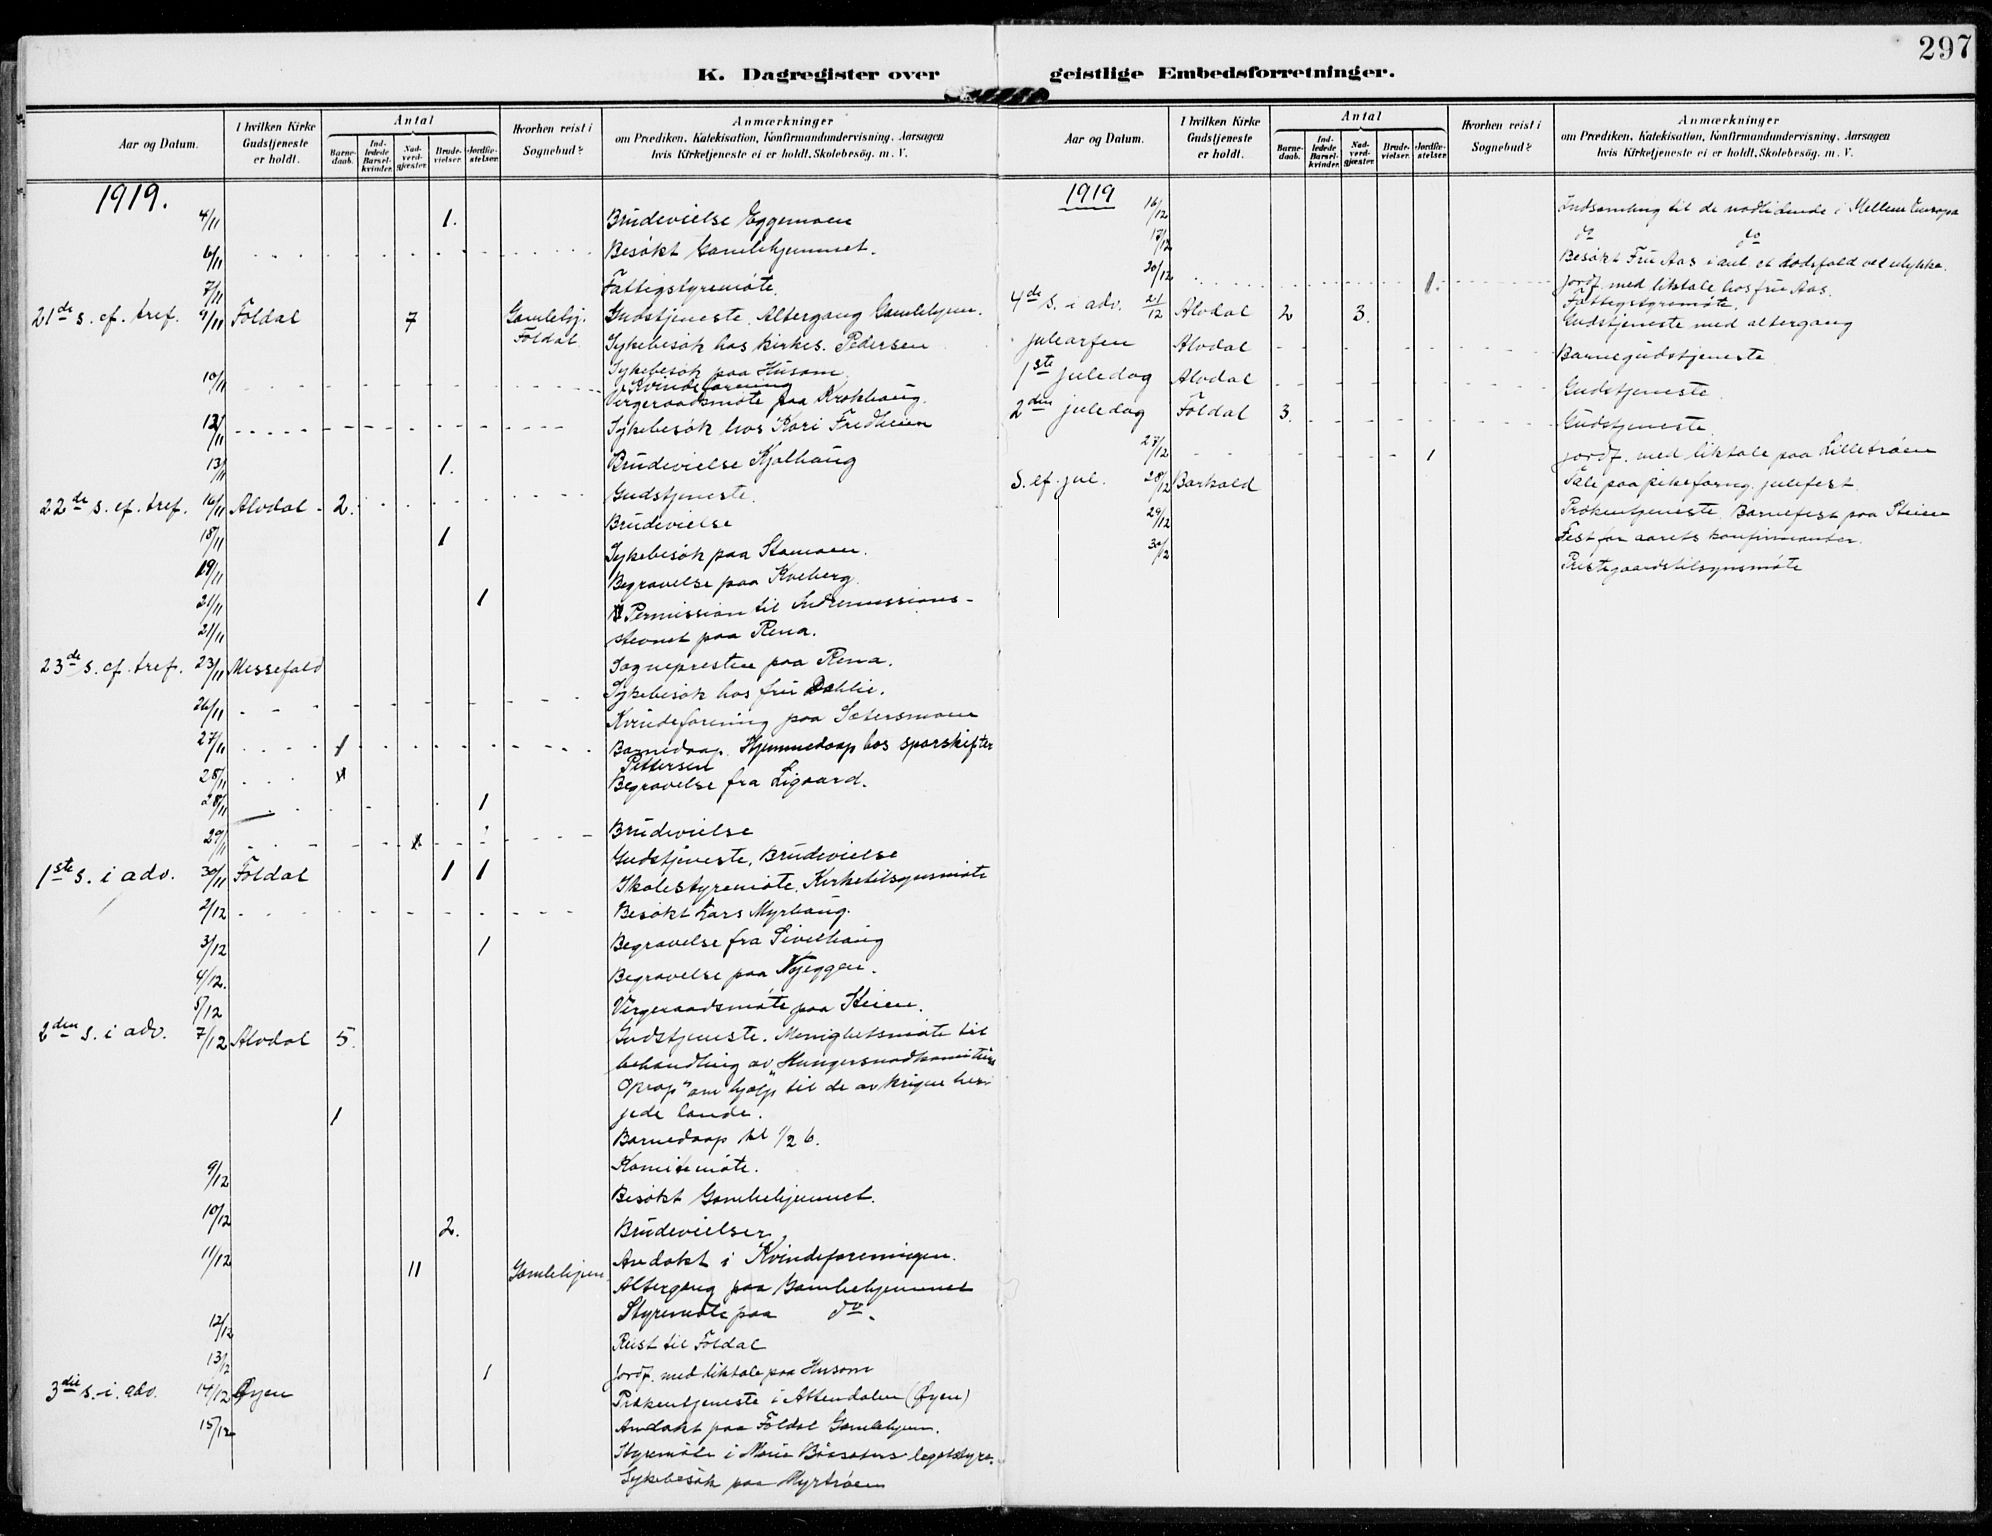 297
K. Dagregister over geistlige Embedsforretninger.
Aar og Datum. I hvilken Kirke Gudstjeneste er holdt. Antal Barnedaab. Indledede Barselkvinder. Nadverdgjæster. Brudevielser. Jordfæstelser. Hvorhen reist i Sognebud? Anmærkninger om Prædiken, Katekisation, Konfirmandundervisning, Aarsagen hvis Kirketjeneste ei er holdt, Skolebesøg, m. V.
1919.
4/11 1. Brudevielse Eggemoen
6/11 Besøkt Gamlehjemmet.
7/11 Fattigstyremøte.
21de s. ef. tref. 9/11 Foldal 7 Gamlehj. Gudstjeneste. Altergang Gamlehjem.
Foldal. Sykebesøk hos kirkes. Pedersen
Sykebesøk paa Husom.
10/11 Kvindeforening
Vergeraadsmøte paa Krokhaug.
12/11 Sykebesøk hos Kari Fredheim
13/11 1. Brudevielse Kjølhaug
22de s. ef. tref. 16/11 Alvdal 2. Gudstjeneste.
18/11 1 Brudevielse
Sykebesøk paa Stamoen.
19/11 Begravelse paa Kveberg.
21/11 1 Permission til Indremissions-
21/11 stevnet paa Rena.
23de s. ef. tref. 23/11 Messefald Sognepresten paa Rena.
Sykebesøk hos fru Dahlie.
26/11 Kvindeforening paa Sætersmoen
27/11 1 Barnedaap. Hjemmedaap hos sporskifter
28/11 Pettersen
Begravelse fra Ligaard.
28/11 1
29/11 Brudevielse
Gudstjeneste, Brudevielse
1ste s. i adv. 30/11 Foldal 1 1 Skolestyremøte. Kirketilsynsmøte
2/12 Besøkt Lars Myrhaug.
3/12 1 Begravelse fra Sivilhaug
4/12. Begravelse paa Nyeggen.
5/12 Vergeraadsmøte paa Steien.
2den s. i adv. 7/12 Alvdal 5. Gudstjeneste. Menighetsmøte til
behandling av Hungersnødkomiteens
Oprop" om hjælp til de av krigen her-
1 jede lande.
Barnedaap kl 1/2 6.
9/12 Komitemøte.
Besøkt Gamlehjemmet.
10/12 2. Brudevielser
11/12 Andakt i Kvindeforeningen.
11 Gamlehjem Altergang paa Gamlehjemmet
Styremøte paa do.
12/12 Reist til Foldal
13/12 1 Jordf. med liktale paa Husom
3die s. i. adv. 14/12 Øyen Prækentjeneste i Atnedalen (Øyen)
15/12 Andakt paa Foldal Gamlehjem.
Styremøte i Marie legatstyre.
Sykebesøk paa Myrtrøen
Aar og Datum. I hvilken Kirke Gudstjeneste er holdt. Antal Barnedaab. Indledede Barselkvinder. Nadverdgjæster. Brudevielser. Jordfæstelser. Hvorhen reist i Sognebud? Anmærkninger om Prædiken, Katekisation, Konfirmandundervisning, Aarsagen hvis Kirketjeneste ei er holdt, Skolebesøg, m. V.
1919
16/12 Indsamling til de nødlidende i Mellem Europa
17/12 do do
Besøkt Fru Aas i anl et dødsfald ved ulykke.
20/12 1. Jordf. med liktale hos fru Aas.
Fattigstyremøte.
4de s. i adv. 21/12 Alvdal 2 3. Gudstjeneste med altergang
juleaften Alvdal Barnegudstjeneste
1ste juledag Alvdal Gudstjeneste.
2den juledag Foldal 3. Gudstjeneste.
27/12 1 Jordf. med liktale paa Lilletrøen
S. ef. jul. 28/12 Barkald Tale paa pikeforng. julefest.
29/12 Prækentjeneste. Barnefest paa Steien
30/12 Fest for aarets konfirmanter.
Prestegaardstilsynsmøte